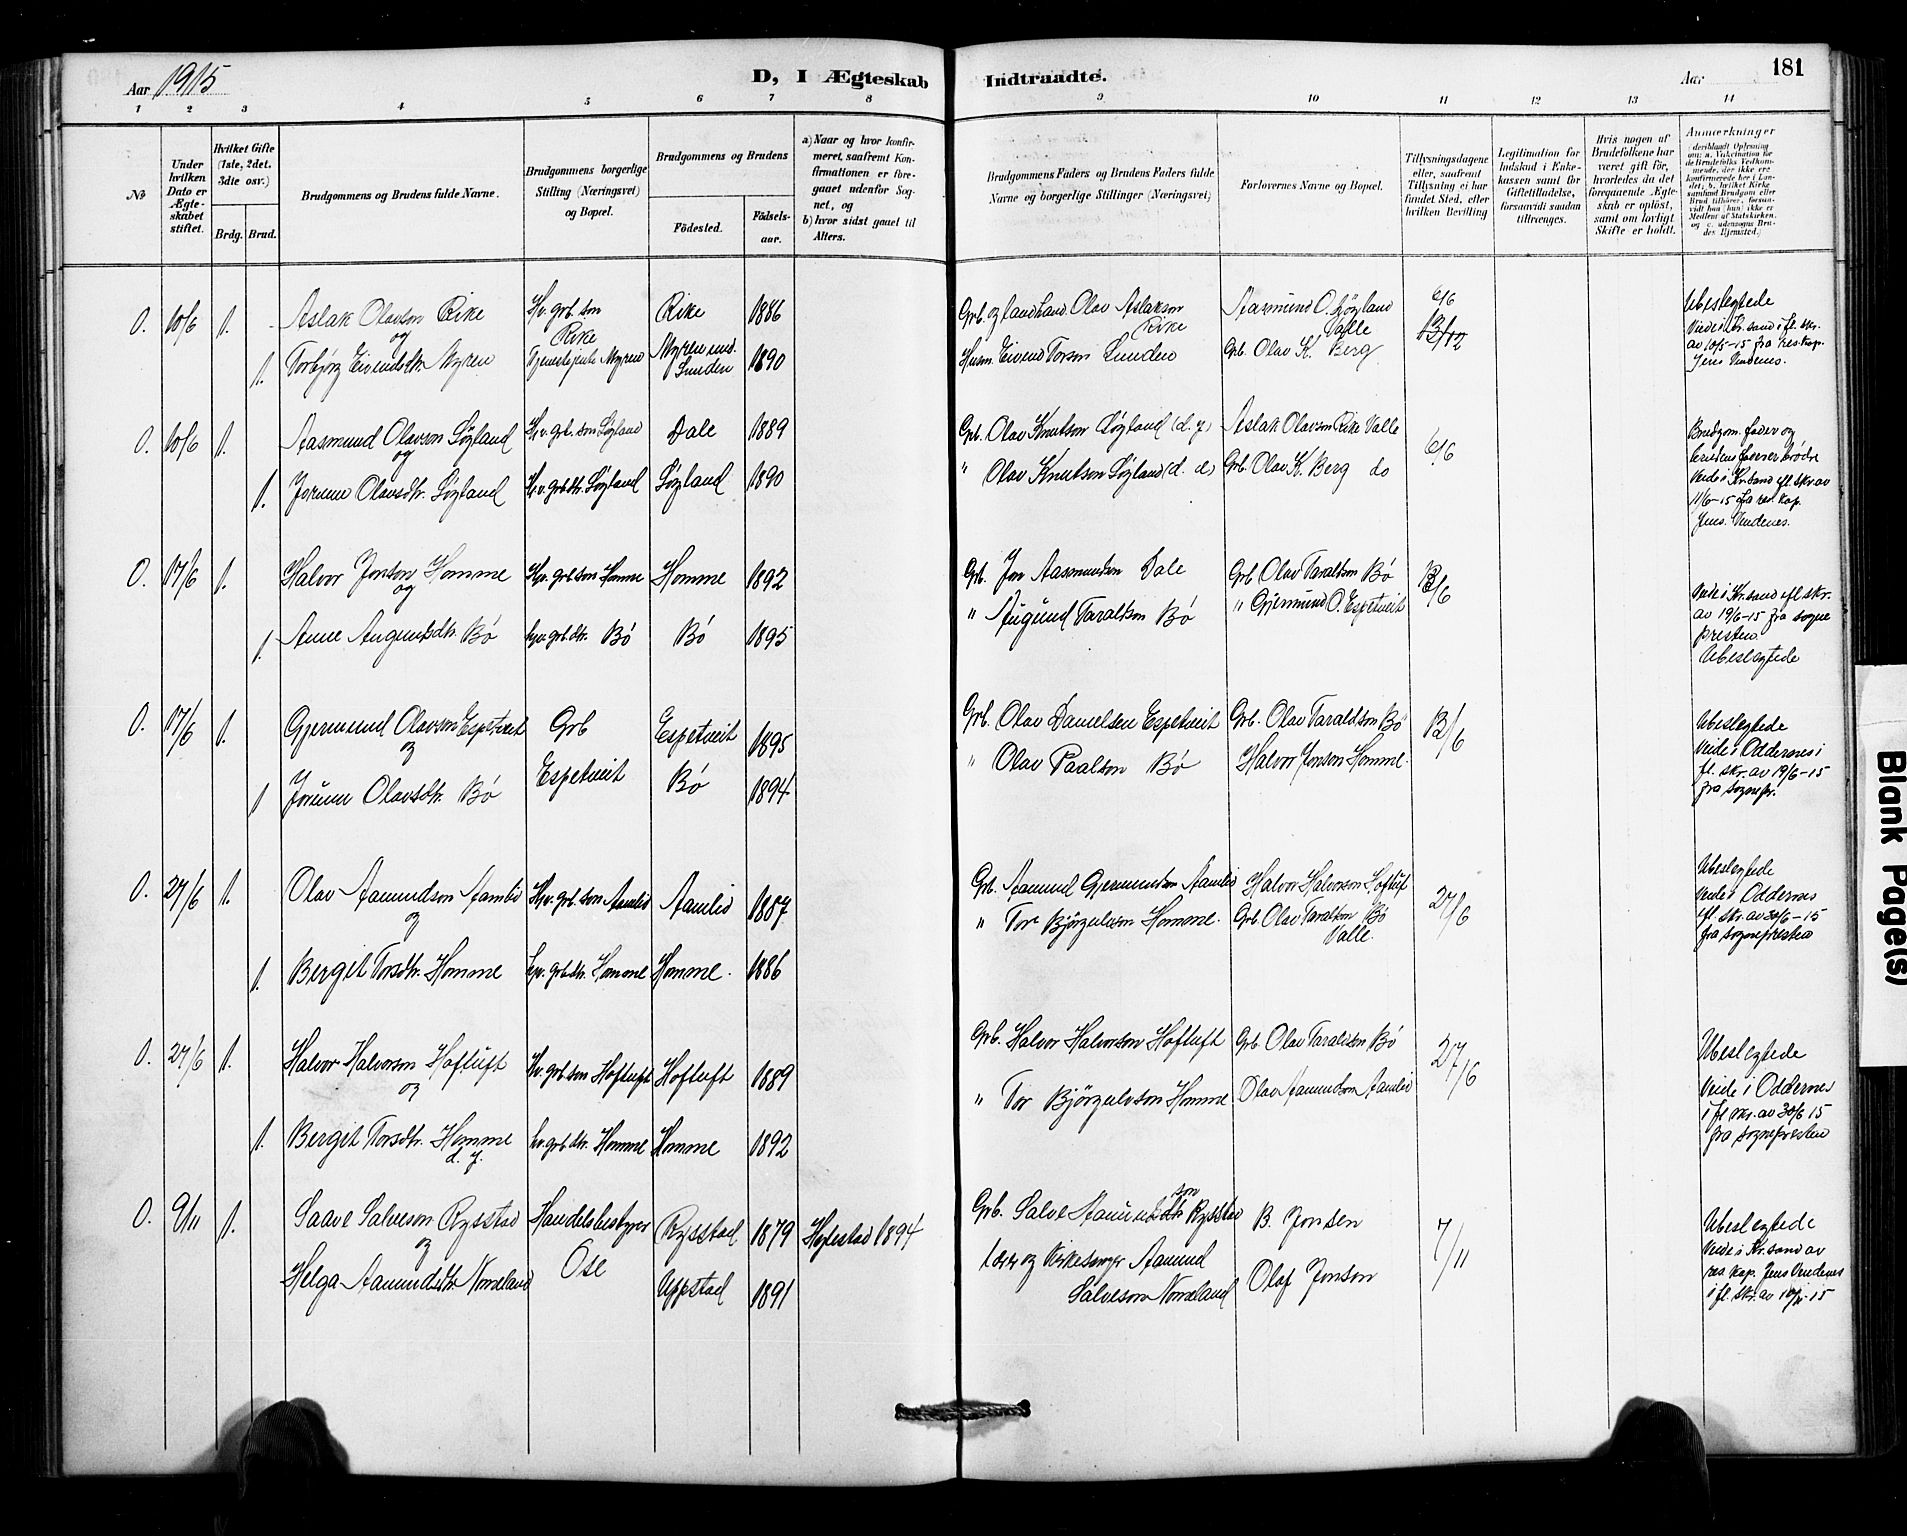 Aar 1915
D, I Ægteskab Indtraadte.
Aar
181
1 2 3 4 5 6 7 8 9 10 11 12 13 14
No
Under hvilken Dato er Ægteskabet stiftet.
Hvilket Gifte (1ste, 2det, 3die osv.)
Brdg. Brud.
Brudgommens og Brudens fulde Navne.
Brudgommens borgerlige Stilling (Næringsvei) og Bopæl.
Brudgommens og Brudens
Födested.
Födselsaar.
a) Naar og hvor konfirmeret, saafremt Konfirmationen er foregaaet udenfor Sognet, og
b) hvor sidst gaaet til Alters.
Brudgommens Faders og Brudens Faders fulde Navne og borgerlige Stillinger (Næringsvei)
Forlovernes Navne og Bopæl.
Tillysningsdagene eller, saafremt Tillysning ei har fundet Sted, efter hvilken Bevilling
Legitimation for Indskud i Enkekassen samt for Giftetilladelse, forsaavidt saadan tiltrænges.
Hvis nogen af Brudefolkene har været gift för, hvorledes da det foregaaende Ægteskab er oplöst, samt om lovligt Skifte er holdt.
Anmærkninger
0. 10/6 1. Aslak Olavson Rike
og
1. Torbjørg Eivendsdtr. Myren
Hv. grb. son
Rike
Tjenestejente Myren
Rike 1886
Myren und. Lunden 1890
Grb. og landhand. Olav Aslakson Rike
Husm. Eivend Torson Lunden
Aasmund O. Løgland
Valle
Grb. Olav K. Berg
6/6
Ubeslegtede
Viede i Kr.sand ifl. skr.
av 10/5-15 fra res. kap.
Jens Vindenes.
0. 10/6 1. Aasmund Olavson Løgland
og
1. Jorunn Olavsdtr. Løgland
Hv. grb. son Løgland
Hv. grb dtr. Løgland
Dale 1889
Løgland 1890
Grb. Olav Knutson Løgland (d. y)
" Olav Knutson Løgland (d. e)
Aslak Olavson Rike Valle
Grb. Olav K. Berg do
6/6
Brudgom. fader og
brudens fader er brødre
Viede i Kr.sand ifl skr. av
11/6-15 fra res. kap.
Jens Vindenes.
0. 17/6 1. Halvor Jonson Homme
og
1. Anne Augundsdtr. Bø
Hv. grb son Homme
hv. grb dtr. Bø
Homme 1892
Bø 1895
Grb. Jon Aasmundson Dale
" Augund Taraldson Bø
Grb Olav Taraldson Bø
" Gjermund O. Espetveit
13/6
Viede i Kr.sand ifl skr.
av 19/6-15 fra sogne
presten.
Ubeslegtede
0. 17/6 1. Gjermund Olavson Espetveit
og
1 Jorunn Olavsdtr. Bø
Grb
Espetveit
Espetveit 1895
Bø 1894
Grb. Olav Danielsen Espetveit
" Olav Paalson Bø
Grb. Olav Taraldson Bø
Halvor Jonson Homme.
13/6
Ubeslegtede
Viede i Oddernes i
fl. skr. av 19/6-15
fra sognepr.
0. 27/6 1. Olav Aamundson Aamlid
og
1. Bergit Torsdtr. Homme
Hv. grb. son Aamlid
hv. grb dtr. Homme
Aamlid 1887
Homme. 1886
Grb. Aamund Gjermundson Aamlid
" Tor Bjørgulvson Homme.
Halvor Halvorson Hoftuft
Grb Olav Taraldson Bø
Valle.
27/6
Ubeslegtede
Viede i Oddernes
ifl. skr. av 30/6-15
fra sognepresten
0. 27/6 1. Halvor Halvorson Hoftuft
og
1. Bergit Torsdtr. Homme
d. y.
Hv. grb son Hoftuft
hv. grb dtr. Homme
Hoftuft 1889
Homme 1892
Grb. Halvor Halvorson Hoftuft
" Tor Bjørgulvson Homme
Grb Olav Taraldson Bø
Olav Aamundson Aamlid
27/6
Ubeslegtede
Viede i Oddernes
i fl skr. av 30/6 15
fra sognepresten
0. 9/11 1. Saave Salveson Rysstad
og
Helga Aamundsdtr. Nomeland
Handelsbestyrer
Ose
Rysstad 1879
Uppstad 1891
Hylestad 1894
Grb. Salve Aamundson Rysstad
Lærer og Kirkesanger Aamund
Salveson Nomeland
B. Jonsen
Olaf Jonson
7/11
Ubeslegtede
Viede i Kr.sand av
res kap. Jens Vindenes
i fl. skr. av 10/11-15
Blank Page(s)